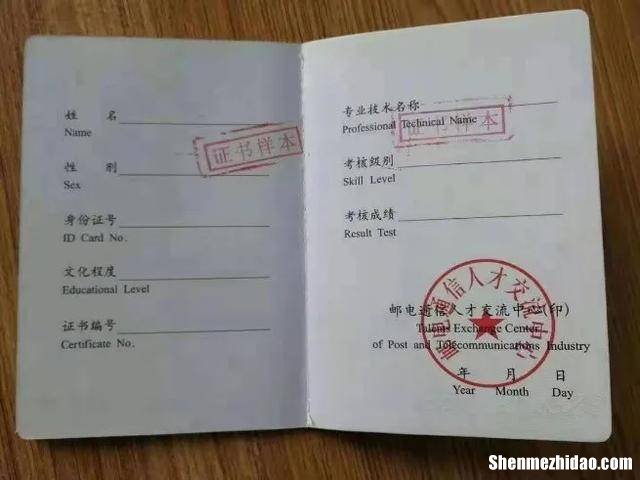 姓 名
Name
性 别
Sex
身份证号
ID Card No.
文化程度
Educational Level
证书编号
Certificate No.
证书样本
专业技术名称
Professional Technical Name
证书样本
考核级别
Skill Level
考核成绩
Result Test
邮电通信人才交流中心(印)
Talents Exchange Center
of Post and Telecommunications Industry
邮电通信人才交流中心
年 月 日
Year Month Day
Shenmezhidao.com